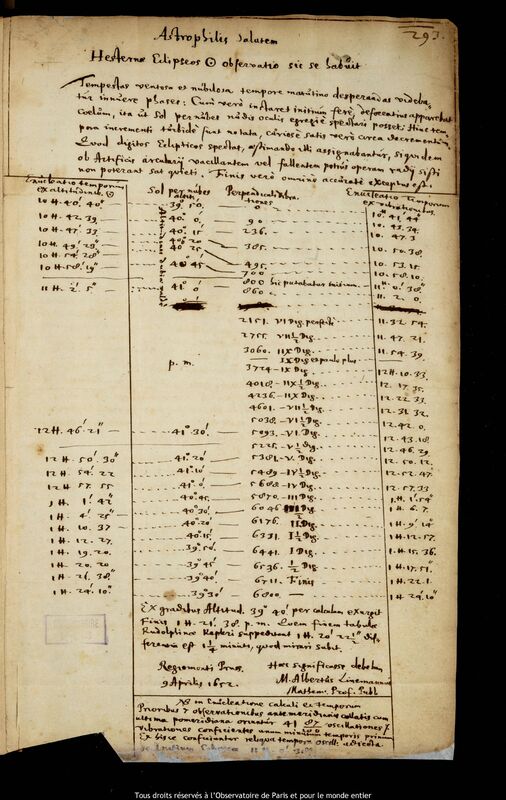 293.
Astrophilis Salutem
Hesternæ Eclipseos ☉ observatio sic se habuit
Tempestas ventosa et nubilosa tempore matutino desperandas videba-
tur innuere phases: Cum verò instaret initium ferè defœcatius apparebat
Cœlum, ita ut Sol per nubes nudis oculis egregiè spectari posset. Hinc tem-
pora incrementi turbidè sunt notata, curiosè satis verò circa decrementum.
Quod digitos Eclipticos spectat, æstimando illi assignabantur, siquidem
ob Artificis arcularij vacillantem vel fallentem potius operam radij sisti
non poterant sat quieti. Finis verò omnino accuratè exceptus est.
Enucleatio temporum ex altitudinibus ☉
Sol per nubes altit.
Perpendiculi vibrationes
Enucleatio temporum ex vibrationibus
39° 50′ 0
10 H. 40′ 40″ 40° 0′ 90 10H 41′ 44″
10 H. 42 39 40° 15′ 236. 10. 43. 34
10 H. 47′ 33 40° 20 10. 47. 3
10 H. 49′ 29″ 40° 25′ 385. 10. 50. 38
10 H. 54′ 28″ 40° 45′ 495. 10. 53. 15
10 H. 58′ 19″ 700 10. 58. 10
11 H. 2′ 5″ 41° 0′ 800 hic putabatur initium. 11. 0′ 38″
860 11. 2. 0
2151. VI Dig. perfectè 11. 32. 54
2755. VII½ Dig. 11. 47. 21
3060. IIX Dig. 11. 54. 39
IX Dig et paulo plus
p. m. 3724 — IX Dig 12H. 10. 33
4018 — IIX½ Dig. 12. 17. 35
4236 — IIX Dig. 12. 22. 33
4601. — VII½ Dig. 12. 31. 32
5038. — VI½ Dig. 12. 42. 0
12H. 46′ 21″ 41° 30′ 5093. VI. Dig. 12. 43. 18
5225. V½ Dig. 12. 46. 29
12 H. 50′ 30″ 41° 20′ 5381. V. Dig. 12. 50. 12
12 H. 54. 22 41° 10′ 5489 — IV½ Dig 12. 52. 47
12 H. 57. 55 41° 0′ 5688 — IV Dig 12. 57. 33
1 H. 1′ 42″ 40° 45 5870. — III Dig. 1 H. 1′ 54″
1 H. 4′ 25″ 40° 30′ 6046 1 H. 6. 7.
1 H. 10. 37 40° 20′ 6176. II Dig. 1 H. 9′ 14″
1 H. 12. 27. 40° 15. 6331 I½ Dig. 1 H. 12. 57.
1 H. 19. 20. 39° 50′ 6441 I Dig. 1 H. 15. 36
1 H. 20. 20 39° 45 6536. ½ Dig. 1 H. 17. 51″
1 H. 26. 38″ 39° 40′ 6711. Finis 1 H. 22. 1
1 H. 24. 10″ 39° 30′ 6800 — 1 H 24. 10″
Ex gradibus Altitud. 39° 40′ per calculum exurgit
Finis 1 H. 21′. 38 p. m. Quem finem tabulæ
Rudolphinæ Kepleri suppeditant 1 H. 20′ 22½″ dif-
ferentia est 1¼ minuti, quod mirari subit.
Regiomonti Pruss.
9 Aprilis 1652.
Hæc significasse debebam
M. Albertus Linemannus
Mathem. Prof. Publ
NB in Enucleatione calculi ex temporum
Prioribus 7 observationibus antemeridianis collatis cum
ultima pomeridiana oriuntur 41 oscillationes
vibrationes conficientes unum minutum temporis primum
Ex hisce conficiuntur reliqua tempora oscill: adscripta
Tous droits réservés à l'Observatoire de Paris et pour le monde entier